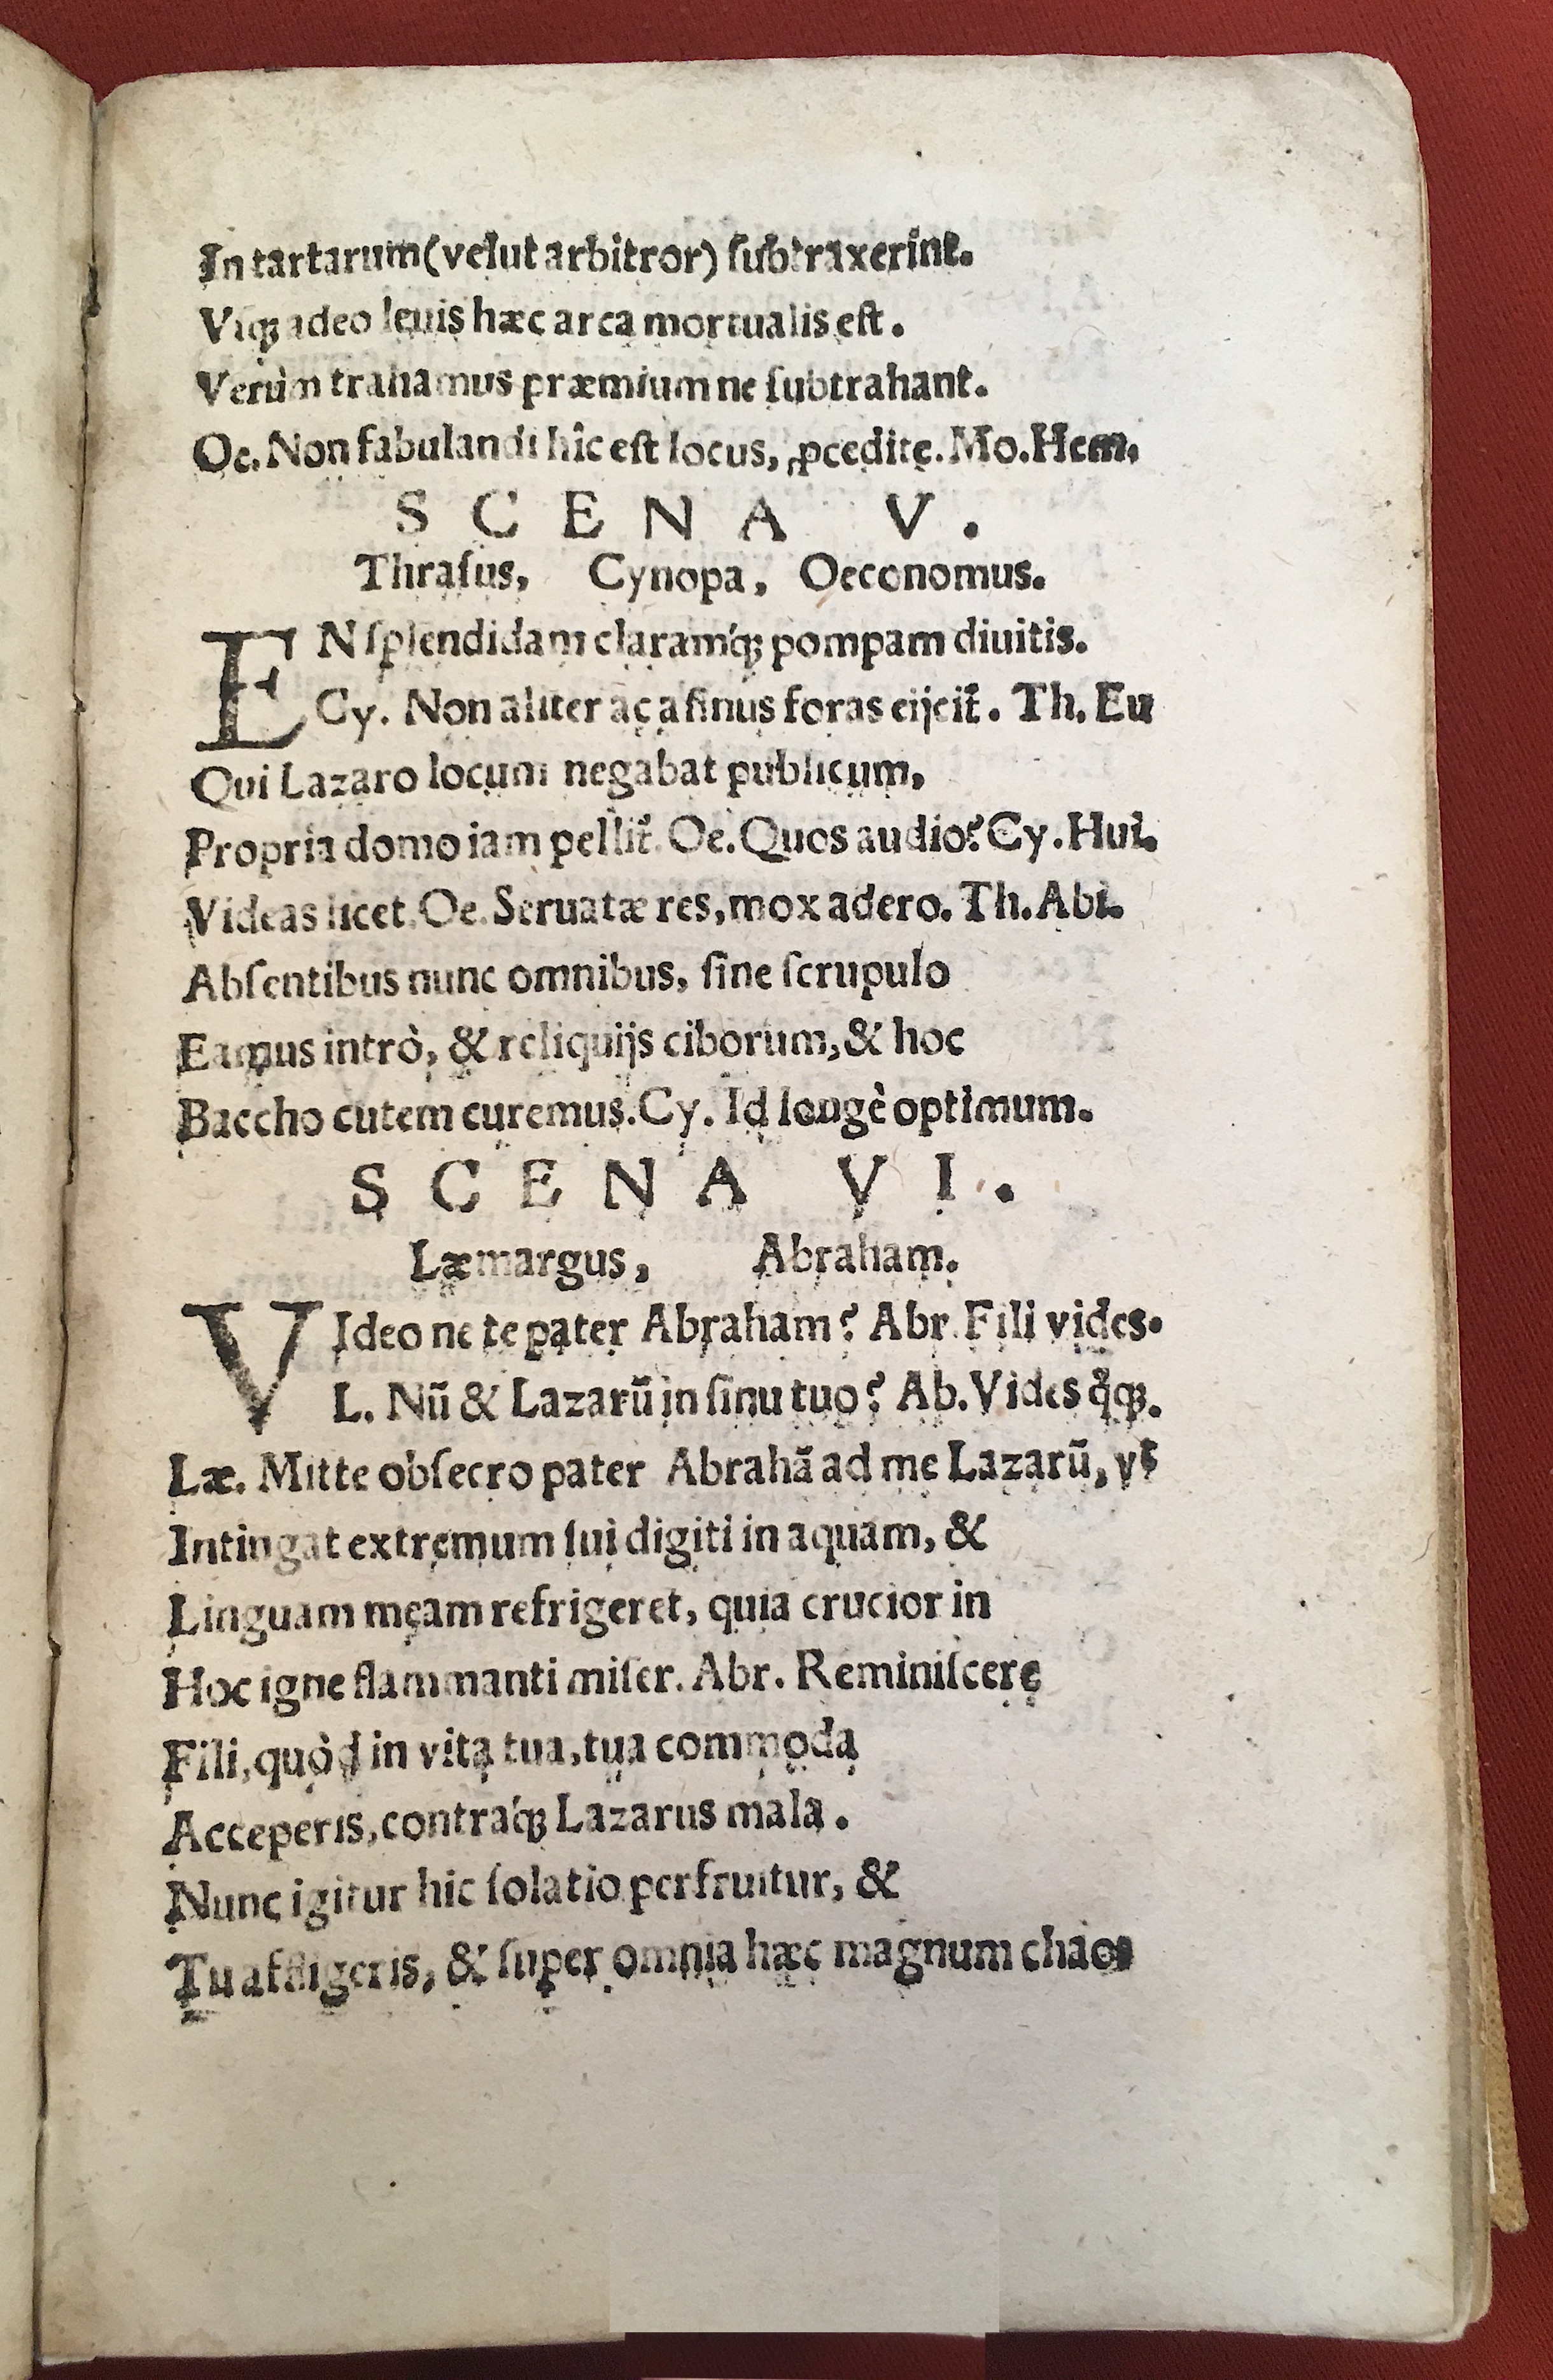 In tartarum (velut arbitror) ſubtraxerint.
Vſqꝫ adeo leuis hæc arca mortualis eſt.
Verùm trahamus præmium ne ſubtrahant.
Oe. Non fabulandi hîc eſt locus, ꝓcedite. Mo. Hem.
SCENA V.
Thraſus, Cynopa, Oeconomus.
EN ſplendidam claramq́ꝫ pompam diuitis.
Cy. Non aliter ac aſinus foras eijcit̃. Th. Eu
Qui Lazaro locum negabat publicum,
Propria domo iam pellit̃. Oe. Quos audio? Cy. Hui.
Videas licet. Oe. Seruatæ res, mox adero. Th. Abi.
Abſentibus nunc omnibus, ſine ſcrupulo
Eamus intrò, & reliquijs ciborum, & hoc
Baccho cutem curemus. Cy. Id longè optimum.
SCENA VI.
Læmargus, Abraham.
VIdeo ne te pater Abraham? Abr. Fili vides.
L. Nũ & Lazarũ in ſinu tuo? Ab. Vides qͦqꝫ.
Læ. Mitte obſecro pater Abrahã ad me Lazarũ, vt
Intingat extremum ſui digiti in aquam, &
Linguam meam refrigeret, quia crucior in
Hoc igne flammanti miſer. Abr. Reminiſcere
Fili, quòd in vita tua, tua commoda
Acceperis, contraq́ꝫ Lazarus mala.
Nunc igitur hic ſolatio perfruitur, &
Tu affligeris, & ſuper omnia hæc magnum chaos